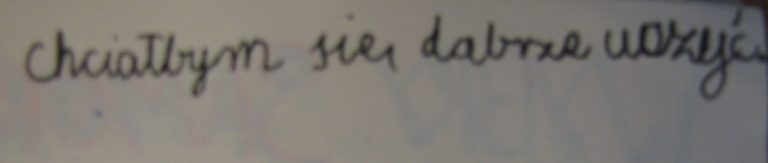 chciałbym się dobrze uczyć.